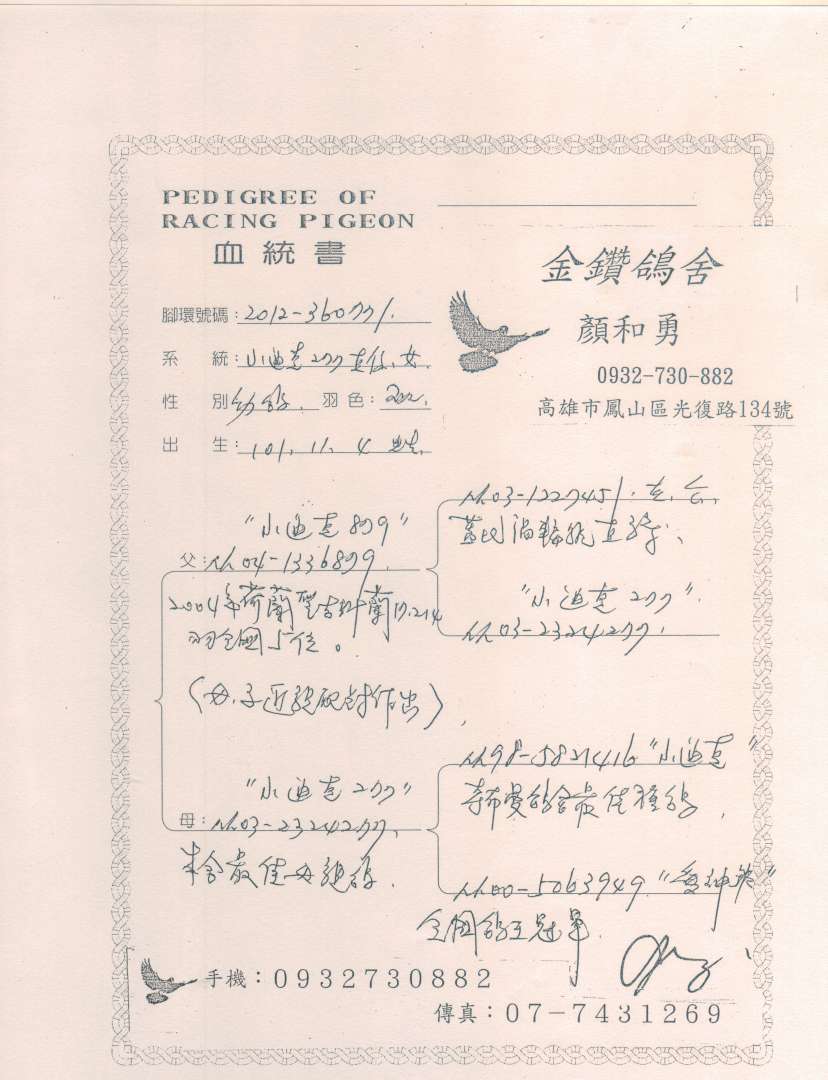 PEDIGREE OF
RACING PIGEON
血統書
金鑽鴿舍
顏和勇
0932-730-882
高雄市鳳山區光復路134號
腳環號碼：2012-360771.
系 統：小迪克277直仔、女
性 別 幼鴿. 羽色：
出 生：101. 11. 4
"小迪克"
父：NL04-1336899.
2004年荷蘭 17.214
羽全國5位。
(母、子近親配對作出).
NL03-1227451.
"小迪克277".
NL03-2324277.
"小迪克277"
母：NL03-2324277.
本舍最佳母種鴿.
NL98-5821416 "小迪克"
鴿舍最佳種鴿.
NL00-5063949
全國鴿王冠軍.
手機：0932730882
傳真：07-7431269